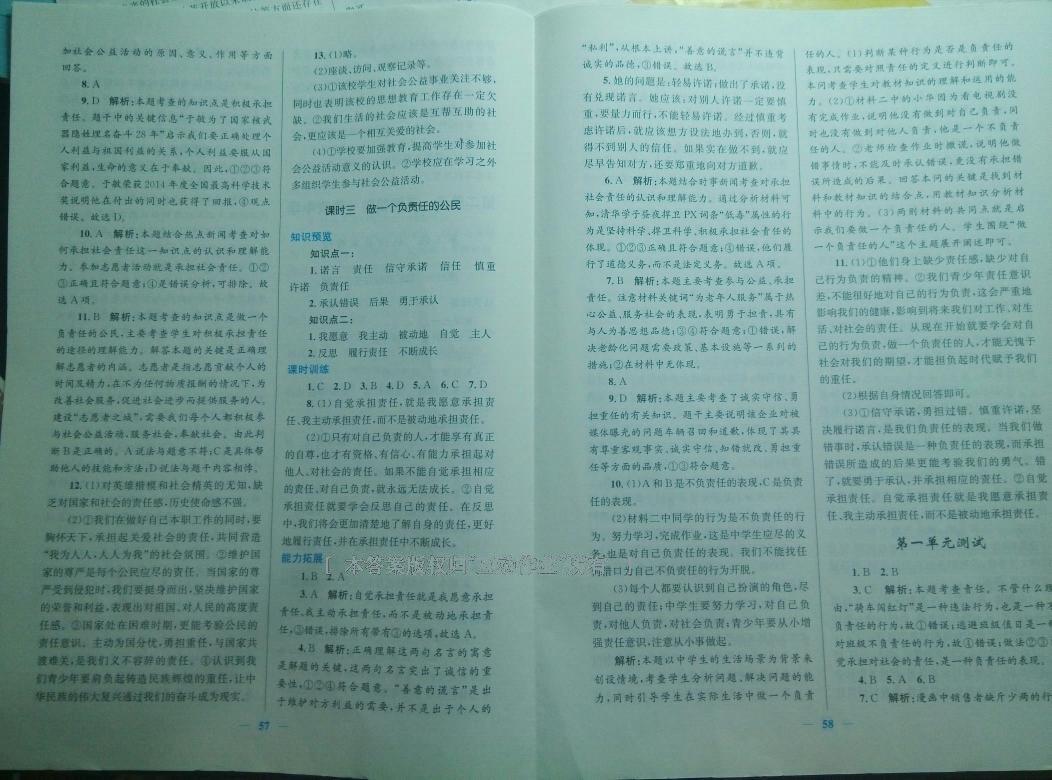 加社会公益活动的原因、意义、作用等方面
回答。
8. A
9. D 解析:本题考查的知识点是积极承担
责任。题干中的关键信息“于敏为了国家核武
器隐姓埋名奋斗 28 年”启示我们要正确处理个
人利益与祖国利益的关系,个人利益要服从国
家利益,生命的意义在于奉献。因此,①②③符
合题意。于敏荣获 2014 年度全国最高科学技术
奖说明他在付出的同时也获得了回报,④观点
错误。故选 D。
10. A 解析:本题结合热点新闻考查对如
何承担社会责任这一知识点的认识和理解能
力。参加志愿者活动就是承担社会责任。①②
③正确且符合题意;④是错误分析,可排除。故
选 A 项。
11. B 解析:本题考查的知识点是做一个
负责任的公民,主要考查学生对积极承担责任
的途径的理解能力。解答本题的关键是正确理
解志愿者的内涵。志愿者是指志愿贡献个人的
时间及精力,在不为任何物质报酬的情况下,为
改善社会服务,促进社会进步而提供服务的人。
建设“志愿者之城”,需要我们每个人都积极参
与社会公益活动,服务社会,奉献社会。由此判
断 B 是正确的。A 说法与题意不符;C 是具体帮
助他人的技能和方法;D 说法与题干内容相悖。
12. (1)对英雄楷模和社会精英的无知,缺
乏对国家和社会的责任感,历史使命感不强。
(2)①我们在做好自己本职工作的同时,要
胸怀天下,承担起关爱社会的责任,共同营造
“我为人人,人人为我”的社会氛围。②维护国
家的尊严是每个公民应尽的责任。当国家的尊
严受到侵犯时,我们要挺身而出,坚决维护国家
的荣誉和利益,表现出对祖国、对人民的高度责
任感。③国家处在困难时期,更能考验公民的
责任意识。主动为国分忧,勇担重任,与国家共
渡难关,是我们义不容辞的责任。④认识到我
们青少年要肩负起铸造民族辉煌的重任,让中
华民族的伟大复兴通过我们的奋斗成为现实。
57
13. (1)略。
(2)座谈、访问、观察记录等。
(3)①该校学生对社会公益事业关注不够,
同时也表明该校的思想教育工作存在一定欠
缺。②我们生活的社会应该是互帮互助的社
会,更应该是一个相互关爱的社会。
(4)①学校要加强教育,提高学生对参加社
会公益活动意义的认识。②学校应在学习之外
多组织学生参与社会公益活动。
课时三 做一个负责任的公民
知识预览
知识点一:
1. 诺言 责任 信守承诺 信任 慎重
许诺 负责任
2. 承认错误 后果 勇于承认
知识点二:
1. 我愿意 我主动 被动地 自觉 主人
2. 反思 履行责任 不断成长
课时训练
1. C 2. D 3. B 4. D 5. A 6. C 7. D
8. (1)自觉承担责任,就是我愿意承担责
任、我主动承担责任,而不是被动地承担责任。
(2)①只有对自己负责的人,才能享有真正
的自尊,也才有资格、有信心、有能力承担起对
他人、对社会的责任。如果不能自觉承担相应
的责任,对自己负责,就永远无法成长。②自觉
承担责任就要学会反思自己的责任。在反思
中,我们将会更加清楚地了解自身的责任,更好
地履行责任,并在承担责任中不断成长。
能力拓展
1. B 2. A
3. A 解析:自觉承担责任就是我愿意承担
责任、我主动承担责任,而不是被动地承担责
任,③错误,排除所有带有③的选项,故选 A。
4. B 解析:正确理解这两句名言的寓意
是解题的关键,这两句名言突出了诚信的重
要性,①②④符合题意。“善意的谎言”是出
于维护对方利益的需要,并不是出于个人的
“私利”,从根本上讲,“善意的谎言”并不违背
诚实的品德,③错误。故选 B。
5. 她的问题是:轻易许诺;做出了承诺,没
有兑现诺言。她应该:对别人许诺一定要慎
重,要量力而行,不能轻易许诺。经过慎重考
虑许诺后,就应该想方设法地办到,否则,就
得不到别人的信任。如果实在做不到,就应
尽早告知对方,还要郑重地向对方道歉。
6. A 解析:本题结合时事新闻考查对承担
社会责任的认识和理解能力。通过分析材料可
知,清华学子昼夜捍卫 PX 词条“低毒”属性的行
为是坚持科学、捍卫科学、积极承担社会责任的
体现。①②③正确且符合题意;④错误,他们履
行了道德义务,而不是法定义务。故选 A 项。
7. B 解析:本题主要考查参与公益、承担
责任。注意材料关键词“为老年人服务”属于热
心公益、服务社会的表现,表明勇于担责,具有
与人为善思想品德;③④符合题意;①错误,解
决老龄化问题需要政策、基本设施等一系列的
措施;②在材料中无体现。
8. A
9. D 解析:本题主要考查了诚实守信、勇
担重任的有关知识。题干主要说明该企业对被
媒体曝光的问题车辆召回和道歉,体现了其具
有尊重客观事实、诚实守信、知错就改、勇担重
任等方面的品质,①③符合题意。
10. (1)A 和 B 是不负责任的表现,C 是负责
任的表现。
(2)材料二中同学的行为是不负责任的行
为。努力学习,完成作业,这是中学生应尽的义
务,也是对自己负责任的表现。我们不能找任
何借口为自己不负责任的行为开脱。
(3)每个人都要认识到自己扮演的角色,尽
到自己的责任;中学生要努力学习,对自己负
责,对他人负责,对社会负责;青少年要从小增
强责任意识,注意从小事做起。
解析:本题以中学生的生活场景为背景来
创设情境,考查学生分析问题、解决问题的能
力,同时引导学生在实际生活中做一个负责
任的人。(1)判断某种行为是否是负责任的
表现,只需要对照责任的定义进行判断即可。
本问考查学生对教材知识的理解和运用的能
力。(2)①材料二中的小华因为看电视剧没
有完成作业,说明他没有做到对自己负责,同
时也没有做到对他人负责,他是一个不负责
任的人。②老师检查作业时撒谎,说明他做
错事情时,不能及时承认错误,更没有承担错
误所造成的后果。回答本问的关键是找到材
料和教材知识的结合点,用教材知识分析材
料中的行为。(3)两则材料的共同点就是启
示我们要做一个负责任的人。学生围绕“做
一个负责任的人”这个主题展开阐述即可。
11. (1)①他们身上缺少责任感,缺少对自
己行为负责的精神。②我们青少年责任意识
差,不能很好地对自己的行为负责,这会严重地
影响我们的健康,影响到将来我们对工作、对生
活、对社会的责任。从现在开始就要学会对自
己的行为负责,做一个负责任的人,才能无愧于
社会对我们的期望,才能担负起时代赋予我们
的重任。
(2)根据自身情况回答即可。
(3)①信守承诺,勇担过错。慎重许诺,坚
决履行诺言,是我们负责任的表现。当我们做
错事时,承认错误是一种负责任的表现,而承担
错误所造成的后果更能考验我们的勇气。错
了,就要勇于承认,并承担相应的责任。②自觉
承担责任。自觉承担责任就是我愿意承担责
任、我主动承担责任,而不是被动地承担责任。
第一单元测试
1. B 2. B
3. C 解析:本题考查责任。不管什么理
由,“骑车闯红灯”是一种违法行为,也是一种不
负责任的行为,故①错误;逃避班级值日是一种
对班级不负责任的行为,故④错误;做法②③
觉承担对社会的责任,是一种负责任的表现。
4. B 5. A 6. B
7. C 解析:漫画中销售者缺斤少两的行
58